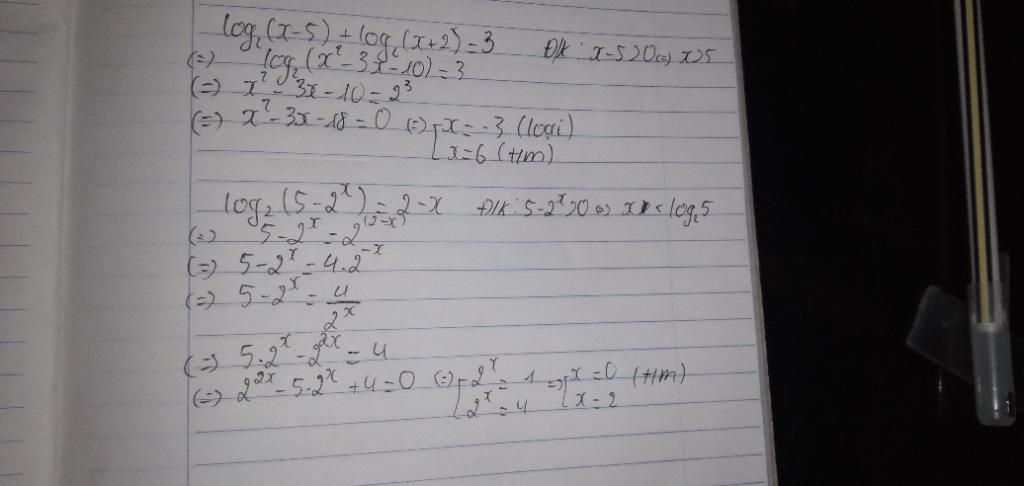 log₂(x-5) + log₂(x+2) = 3 ĐK: x-5>0 (=) x>5
(=) log₂(x²-3x-10) = 3
(=) x²-3x-10 = 2³
(=) x²-3x-18 = 0 (=) [x = -3 (loại)
[x = 6 (t/m)
log₂(5-2ˣ) = 2-x ĐK: 5-2ˣ>0 (=) x < log₂5
(=) 5-2ˣ = 2^(2-x)
(=) 5-2ˣ = 4.2^-x
(=) 5-2ˣ = 4/2ˣ
(=) 5.2ˣ - 2^2x = 4
(=) 2^2x - 5.2ˣ + 4 = 0 (=) [2ˣ = 1 => [x = 0 (t/m)
[2ˣ = 4 [x = 2